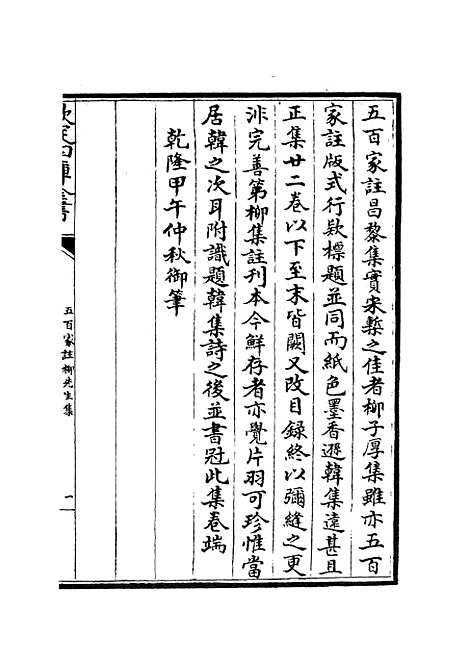 五百家註昌黎集實宋槧之佳者柳子厚集雖亦五百
家註版式行款標題並同而紙色墨香遜韓集遠甚且
正集廿二卷以下至末皆闕又改目録終以彌縫之更
非完善第柳集註刊本今鮮存者亦覺片羽可珍惟當
居韓之次耳附識題韓集詩之後並書冠此集卷端
乾隆甲午仲秋御筆
欽定四庫全書
五百家註柳先生集
一